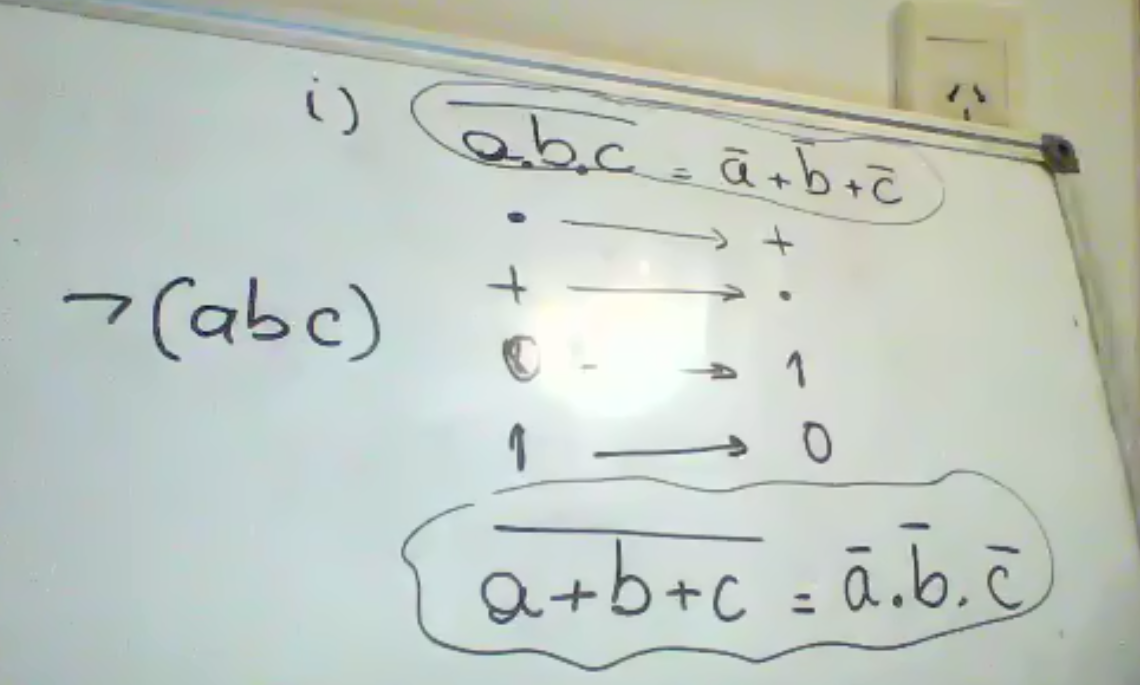 i) \overline{a.b.c} = ā + b̄ + c̄
. → +
+ → .
¬(abc)
0 → 1
1 → 0
\overline{a+b+c} = ā.b̄.c̄